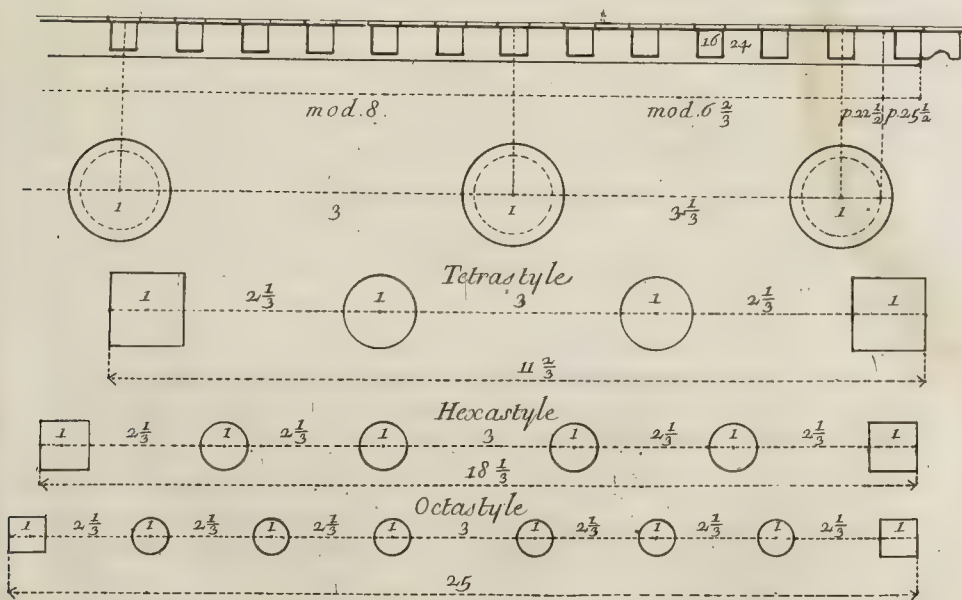 16 24
mod. 8. mod. 6 2/3 p. 22 1/2 p. 25 1/2
1 3 1 3 1/3 1
Tetrastyle
1 2 1/3 1 3 1 2 1/3 1
11 2/3
Hexastyle
1 2 1/3 1 2 1/3 1 3 1 2 1/3 1 2 1/3 1
18 1/3
Octastyle
1 2 1/3 1 2 1/3 1 2 1/3 1 3 1 2 1/3 1 2 1/3 1 2 1/3 1
25